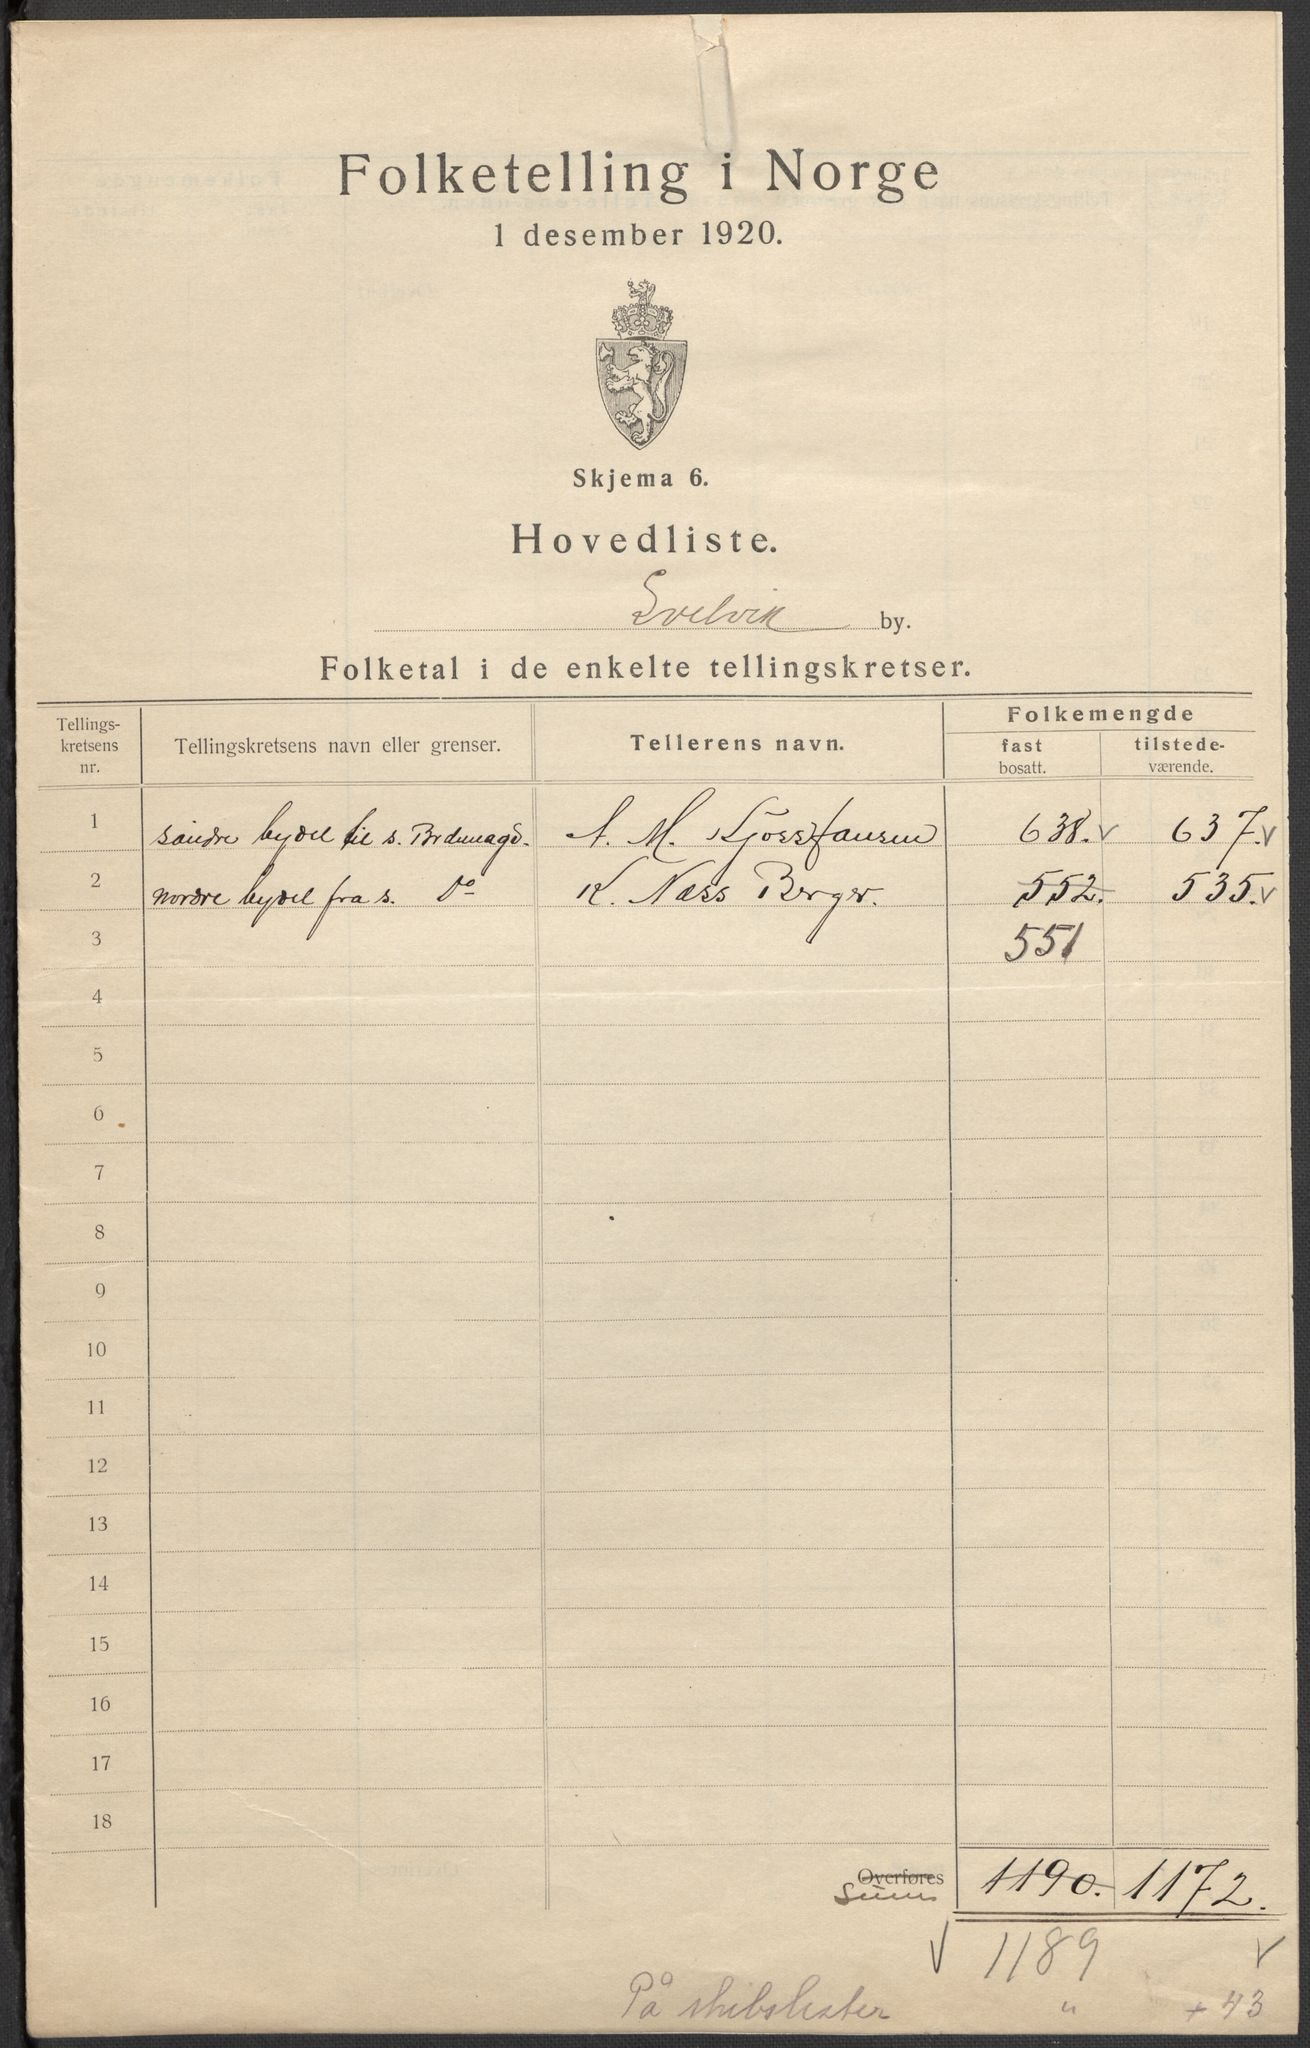 Folketelling i Norge
1 desember 1920.
Skjema 6.
Hovedliste.
Svelvik by.
Folketal i de enkelte tellingskretser.
Tellings-
kretsens
nr.
Tellingskretsens navn eller grenser.
Tellerens navn.
Folkemengde
fast
bosatt.
tilstede-
værende.
1 søndre bydel til s. A. M. 638. v 637. v
2 nordre bydel fra s. Do K. Næss Berger. 552. 535. v
3 551
4
5
6
7
8
9
10
11
12
13
14
15
16
17
18
Overføres 1190. 1172.
Sum
v 1189 v
På skibslister " + 43